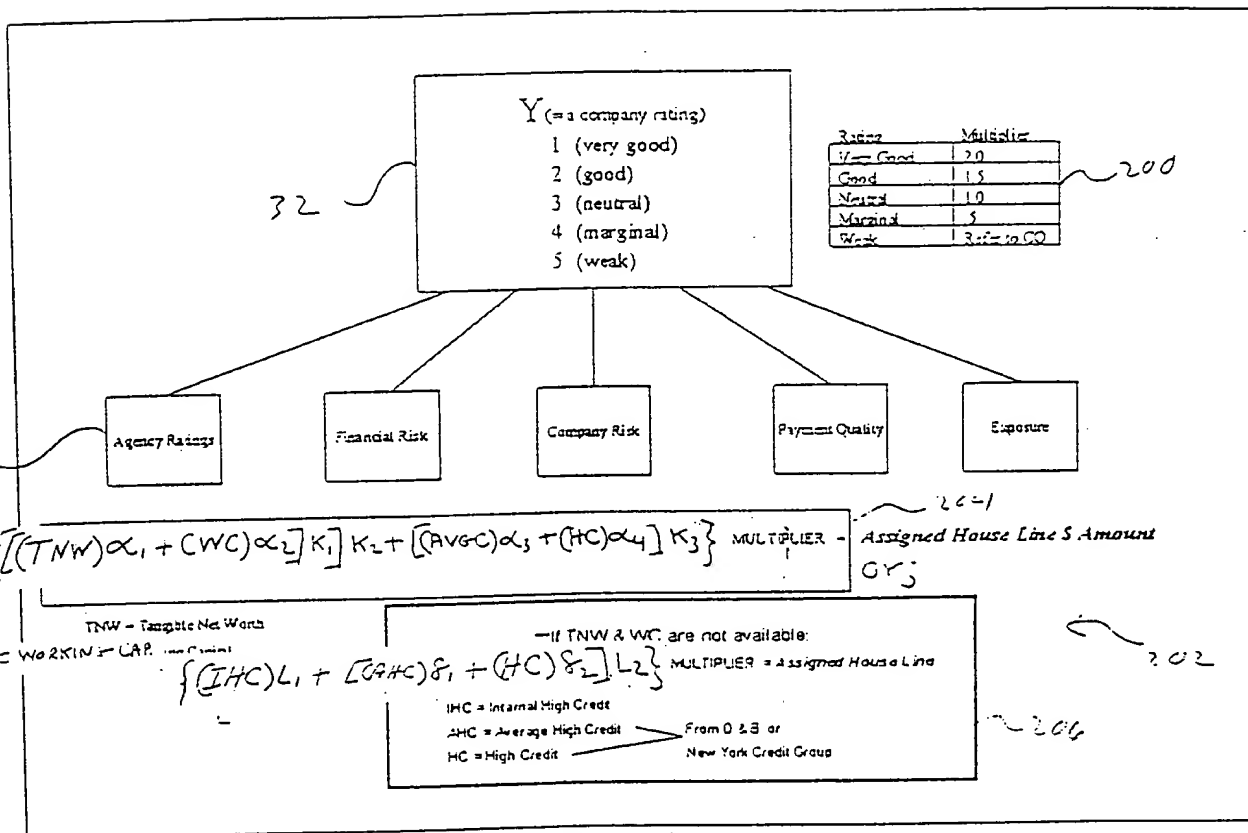 Y (= a company rating)
1 (very good)
2 (good)
3 (neutral)
4 (marginal)
5 (weak)
32
Rating Multiplier
Very Good 2.0
Good 1.5
Neutral 1.0
Marginal .5
Weak Refer to CO
200
Agency Ratings
Financial Risk
Company Risk
Payment Quality
Exposure
[[(TNW)α₁ + (WC)α₂]K₁]K₂ + [(AVGC)α₃ + (HC)α₄]K₃} MULTIPLIER -
Assigned House Line $ Amount
or;
TNW - Tangible Net Worth
= WORKING CAP.
—If TNW & WC are not available:
{(IHC)L₁ + [(AHC)8₁ + (HC)8₂]L₂} MULTIPLIER = Assigned House Line
202
IHC = Internal High Credit
AHC = Average High Credit
HC = High Credit
From D & B or
New York Credit Group
206